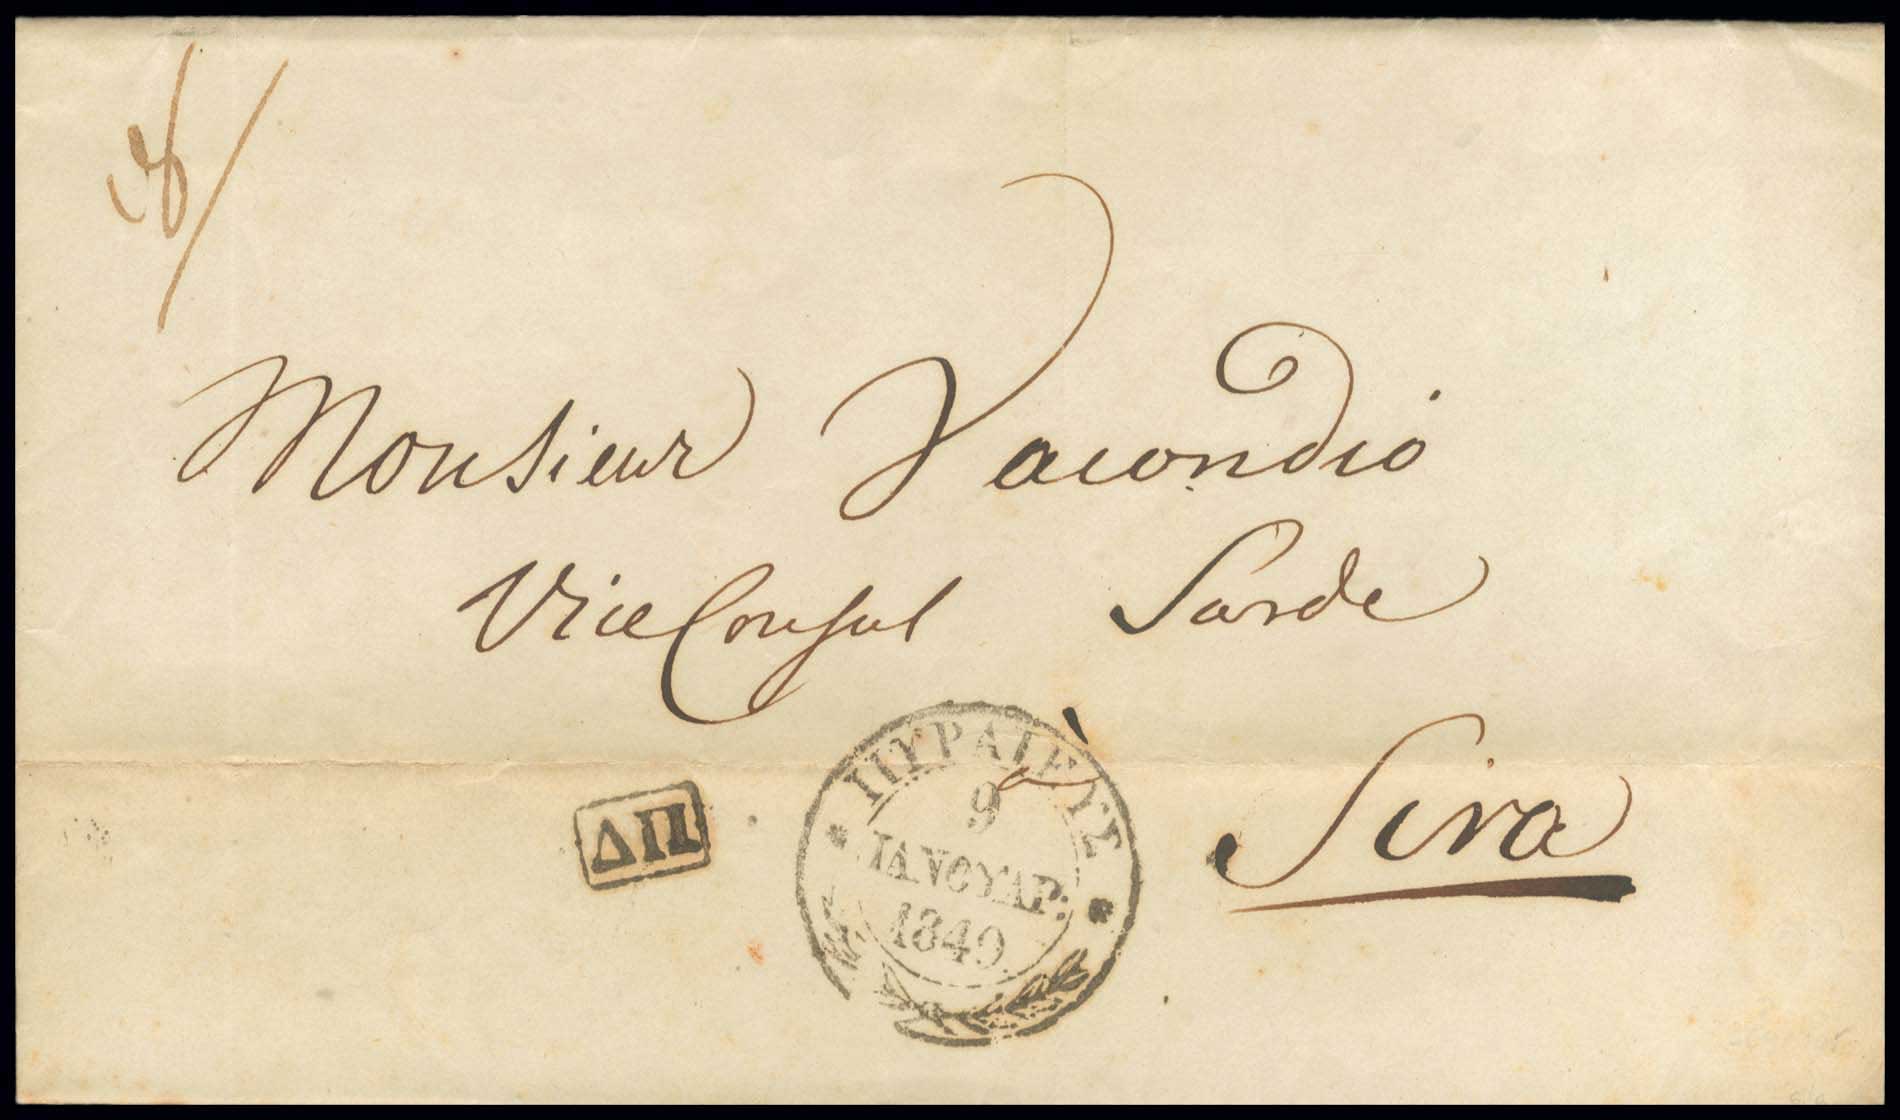 Monsieur Vacondio
Vice Consul Sarde
à Sira
ΔΠ
ΠΥΡΑΙΕΥΣ
9
ΙΑΝΟΥΑΡ.
1849